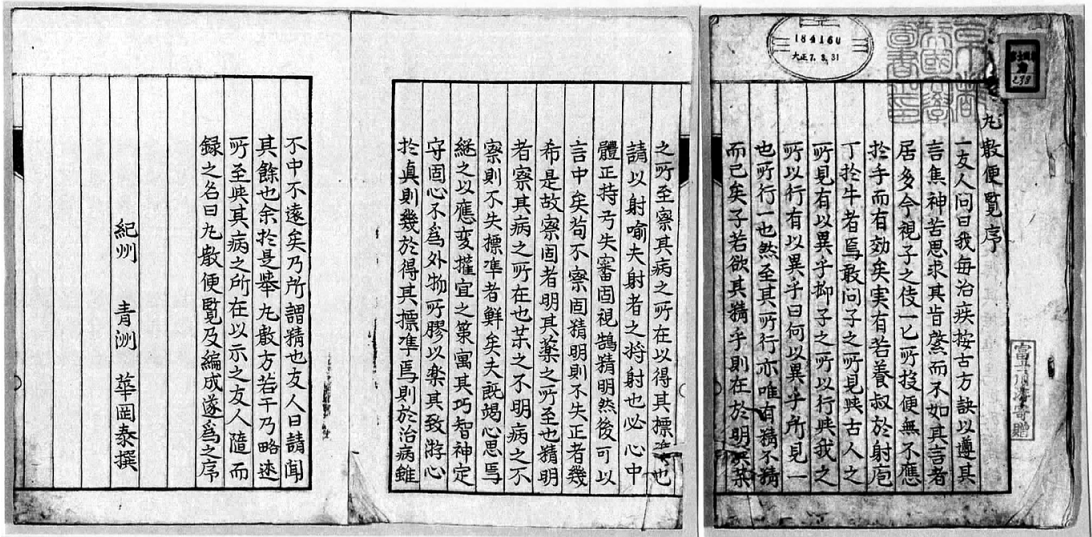 184160
大正7.3.31
京都
帝國大學
圖書之印
富士川游寄贈
丸散便覧序
一友人問曰我毎治疾按古方訣以遵其
言焦神苦思求其肯綮而不如其言者
居多今視子之伎一匕所投便無不應
於手而有効矣実有若養叔於射庖
丁於牛者焉敢問子之所見與古人之
所見有以異乎抑子之所以行與我之
所以行有以異乎曰何以異乎所見一
也所行一也然至其所行亦唯有精不精
而已矣子若欲其精乎則在於明其薬
之所至察其病之所在以得其標準也
請以射喻夫射者之将射也必心中
體正持弓矢審固視鵠精明然後可以
言中矣苟不察固精明則不失正者幾
希是故察固者明其薬之所至也精明
者察其病之所在也薬之不明病之不
察則不失標準者鮮矣夫既竭心思焉
継之以應変權宜之策寓其巧智神定
守固心不為外物所膠以楽其致游心
於真則幾於得其標準焉則於治病雖
不中不遠矣乃所謂精也友人曰請聞
其餘也余於是舉丸散方若干乃略述
所至與其病之所在以示之友人隨而
録之名曰丸散便覧及編成遂為之序
紀州 青洲 華岡泰撰